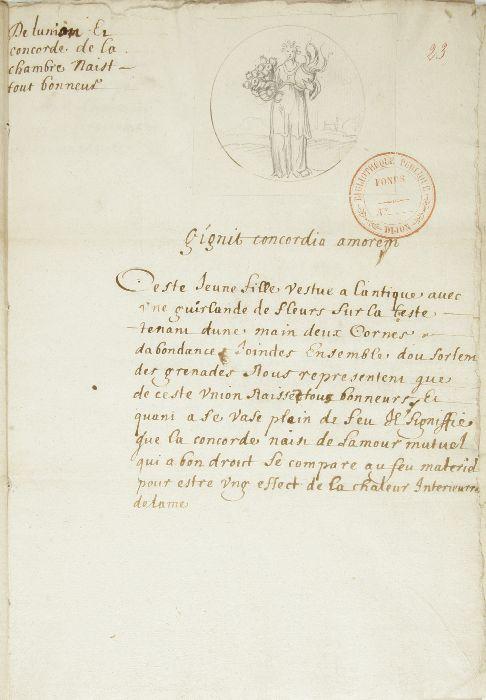 De lunion Et
concorde de la
chambre Naist
tout bonneur
23
BIBLIOTHEQUE PUBLIQUE
FONDS
DIJON
Gignit concordia amorem
Ceste Jeune fille vestue a lantique avec
vne guirlande de fleurs sur la teste
tenant dune main deux Cornes
dabondance Joindes Ensemble dou sortem
des grenades Nous representent que
de ceste vnion Naissent tous bonneurs Et
quant a se vase plain de feu Il signiffie
que la concorde naist de lamour mutuel
qui a bon droit se compare au feu materiel
pour estre vng effect de la chaleur Interieure
de lame